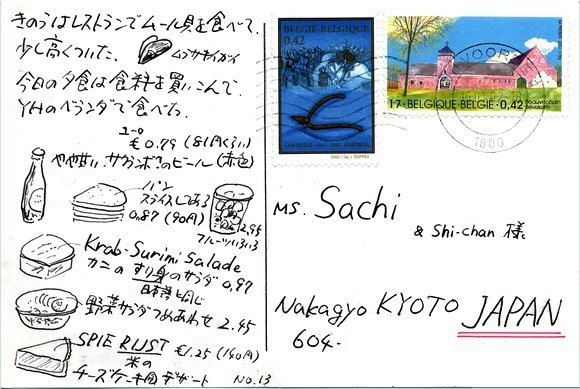 きのうはレストランでムール貝を食べて、
少し高くついた。
ムラサキイガイ
今日の夕食は食料を買いこんで、
YHのベランダで食べた。
ユーロ
€0.79 (81円くらい)
やや甘い サクランボのビール(赤色)
パン
スライスしてある
0.87 (90円)
2.95
フルーツいろいろ
Krab-Surimi Salade
カニの すり身のサラダ 0.97
日本語と同じ
野菜サラダつめあわせ 2.45
SPIE RIJST €1.25 (130円)
米の
チーズケーキ風デザート
No.13
BELGIE-BELGIQUE
0,42
17·BELGIQUE·BELGIË·0,42
Beauvechain
Bevekom
NOOR
1800
Ms. Sachi
& Shi-chan 様
Nakagyo KYOTO JAPAN
604-